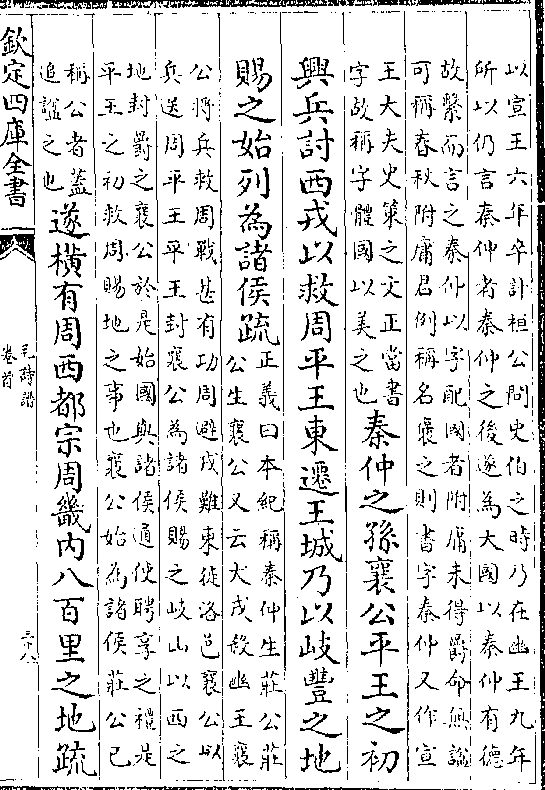 以宣王六年卒計桓公問史伯之時乃在幽王九年
所以仍言秦仲者秦仲之後遂為大國以秦仲有德
故繫而言之秦仲以字配國者附庸未得爵命無諡
可稱春秋附庸君例稱名褒之則書字秦仲又作宣
王大夫史策之文正當書
字故稱字體國以美之也
秦仲之孫襄公平王之初
興兵討西戎以救周平王東遷王城乃以岐豐之地
賜之始列為諸侯疏
正義曰本紀稱秦仲生莊公莊
公生襄公又云犬戎殺幽王襄
公將兵救周戰甚有功周避戎難東徙洛邑襄公以
兵送周平王平王封襄公為諸侯賜之岐山以西之
地封爵之襄公於是始國與諸侯通使聘享之禮是
平王之初救周賜地之事也襄公始為諸侯莊公已
稱公者蓋
追諡之也
遂橫有周西都宗周畿內八百里之地疏
欽定四庫全書
毛詩譜
卷首
三十八